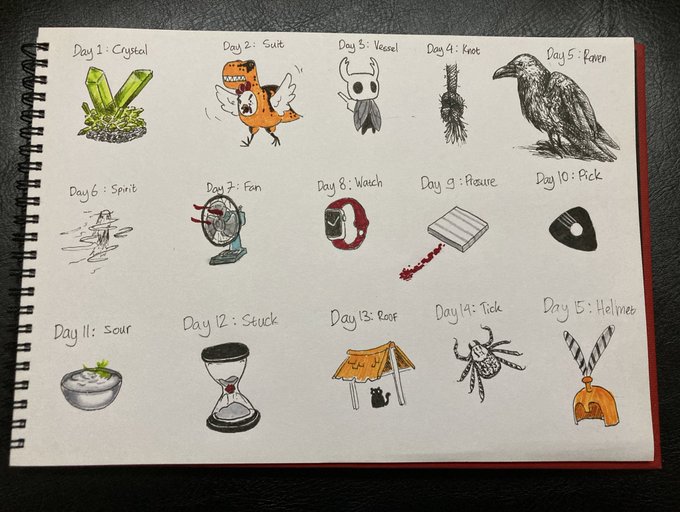 Day 1: Crystal
Day 2: Suit
Day 3: Vessel
Day 4: Knot
Day 5: Raven
Day 6: Spirit
Day 7: Fan
Day 8: Watch
Day 9: Presure
Day 10: Pick
Day 11: Sour
Day 12: Stuck
Day 13: Roof
Day 14: Tick
Day 15: Helmet